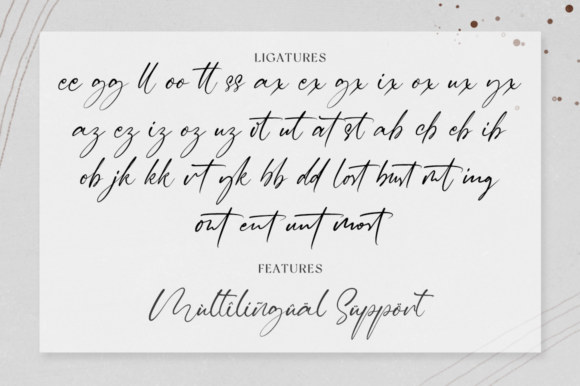 LIGATURES
ee gg ll oo tt ss ax ex gx ix ox ux yx
az ez iz oz uz it ut at st ab cb eb ib
ob jk kk rt yk bb dd lost bust ing
ont ent unt most
FEATURES
Mùltîlíñgüäl Sūppört